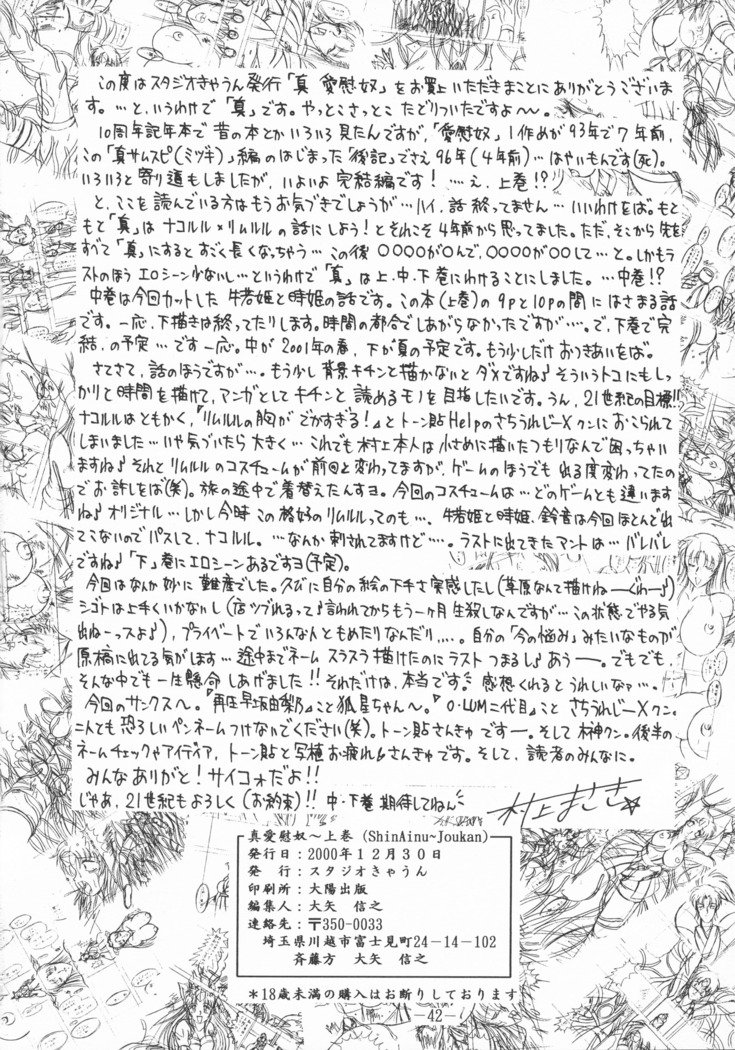 この度はスタジオきゃうん発行「真 愛慰奴」をお買上いただきまことにありがとうございま
す。…と、いうわけで「真」です。やっとこさっとこ たどりついたですよ〜〜。
10周年記年本で昔の本とかいろいろ見たんですが、「愛慰奴」1作めが93年で7年前、
この「真サムスピ(ミヅキ)」編のはじまった「後記」でさえ96年(4年前)…はやいもんです(死)。
いろいろと寄り道もしましたが、いよいよ完結編です! …え、上巻!?
と、ここを読んでいる方はもうお気づきでしょうが…ハイ、話終ってません…いいわけをば。もと
もと「真」はナコルル×リムルルの話にしよう!とそれこそ4年前から思ってました。ただ、そこから先を
すべて「真」にするとすごく長くなっちゃう…この後〇〇〇〇が〇んで、〇〇〇〇が〇〇して…と。しかもラ
ストのほうエロシーン少ないし…というわけで「真」は上・中・下巻にわけることにしました。…中巻!?
中巻は今回カットした牛若姫と時姫の話です。この本(上巻)の9pと10pの間にはさまる話
です。一応、下描きは終ってたりします。時間の都合でしあがらなかったですが…。で、下巻で完
結、の予定…です一応。中が2001年の春、下が夏の予定です。もう少しだけおつきあいをば。
さてさて、話のほうですが…。もう少し背景キチンと描かないとダメですね♪そういうトコにもしっ
かりと時間を描けて、マンガとしてキチンと読めるモノを目指したいです。うん、21世紀の目標!!
ナコルルはともかく、『リムルルの胸がでかすぎる!』とトーン貼Helpのさちうれじ―Xクンにおこられて
しまいました…いや気づいたら大きく…これでも村上本人は小さめに描いたつもりなんで困っちゃい
ますね♪それとリムルルのコスチュームが前回と変わってますが、ゲームのほうでも出る度変わってたの
でお許しをば(笑)。旅の途中で着替えたんすヨ。今回のコスチュームは…どのゲームとも違います
ね♪オリジナル…しかし今時この格好のリムルルってのも…。牛若姫と時姫、鈴音は今回ほとんど出
てこないのでパスして、ナコルル。…なんか刺されてますけど…。ラストに出てきたアントは…バレバレ
ですね♪「下」巻にエロシーンあるですヨ(予定)。
今回はなんか妙に難産でした。久びに自分の絵の下手さ実感したし(草原なんて描けね―ぐわ―♪)
シゴトは上手くいかないし(店ツブれるって♪言われてからもう一ヶ月生殺しなんですが…この状態でやる気
出ね―っスよ♪)、プライベートでいろんな人ともめたりなんだり…。自分の「今の悩み」みたいなものが
原稿に出てる気がします…途中までネームスラスラ描けたのにラストつまるし♪あう―。でもでも、
そんな中でも一生懸命しあげました!!それだけは、本当です。感想くれるとうれしいなァ…。
今回のサンクスへ。『再圧早坂由梨乃』こと狐臭ちゃん〜。『O・LUM二代目』こと さちうれじ―Xクン。
二人とも恐ろしいペンネームつけないでください(笑)。トーン貼さんきゅです―。そして林神クン。後半の
ネームチェックやアイディア、トーン貼と写植お疲れ♪さんきゅです。そして、読者のみんなに。
みんなありがと!サイコォだよ!!
じゃあ、21世紀もよろしく(お約束)!! 中・下巻期待してねん
村上まさき☆
真愛慰奴〜上巻(ShinAinu~Joukan)
発行日:2000年12月30日
発　行:スタジオきゃうん
印刷所:大陽出版
編集人:大矢 信之
連絡先:〒350-0033
埼玉県川越市富士見町24−14−102
斉藤方 大矢 信之
*18歳未満の購入はお断りしております
-42-